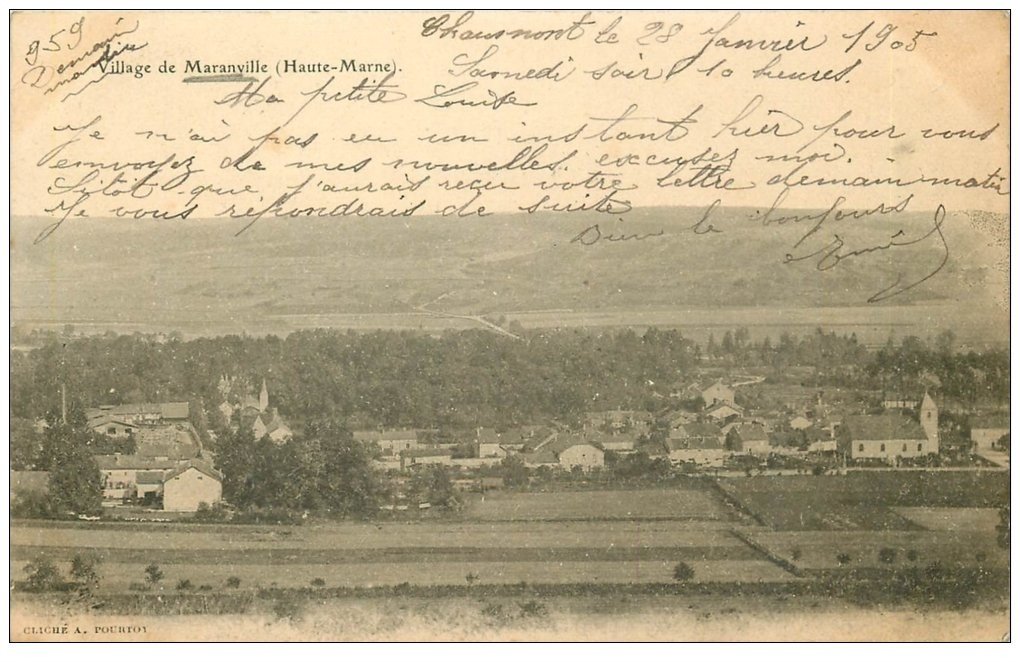 959
Chaumont le 28 Janvier 1905
Village de Maranville (Haute-Marne).
Samedi soir 10 heures.
Ma petite Louise
Je n'ai pas eu un instant hier pour vous
envoyez de mes nouvelles. excusez moi.
Sitôt que j'aurais reçu votre lettre demain matin
Je vous répondrais de suite
Bien le bonjours
CLICHÉ A. POURTOY